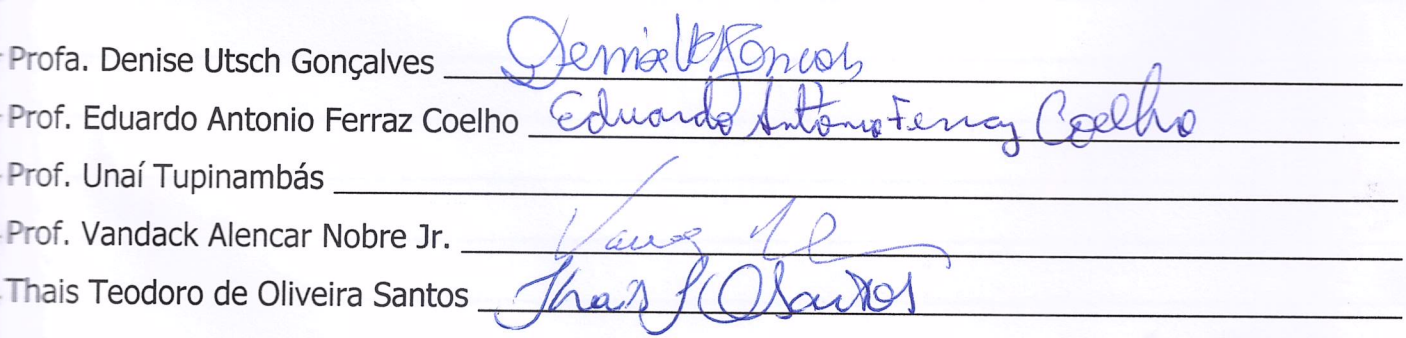 Profa. Denise Utsch Gonçalves Denise
Prof. Eduardo Antonio Ferraz Coelho Eduardo Antônio Ferraz Coelho
Prof. Unaí Tupinambás
Prof. Vandack Alencar Nobre Jr.
Thais Teodoro de Oliveira Santos Thais T O Santos